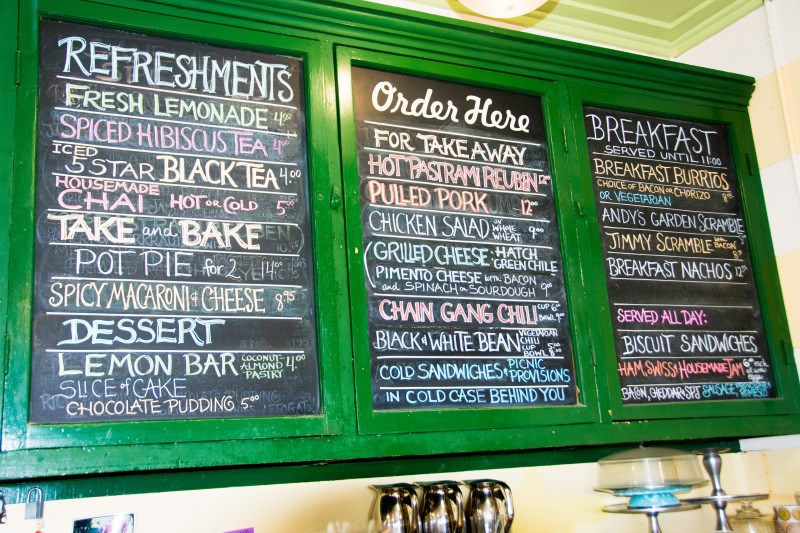 REFRESHMENTS
FRESH LEMONADE 4.00
SPICED HIBISCUS TEA 4.00
ICED
5 STAR BLACK TEA 4.00
HOUSEMADE
CHAI HOT OR COLD 5.00
TAKE and BAKE
POT PIE for 2 14.00
SPICY MACARONI & CHEESE 8.95
DESSERT
LEMON BAR COCONUT ALMOND PASTRY 4.00
SLICE of CAKE
CHOCOLATE PUDDING 5.00
Order Here
FOR TAKE AWAY
HOT PASTRAMI REUBEN 12.00
PULLED PORK 12.00
CHICKEN SALAD ON WHOLE WHEAT 9.00
GRILLED CHEESE: HATCH GREEN CHILE
PIMENTO CHEESE with BACON
AND SPINACH on SOURDOUGH 9.00
CHAIN GANG CHILI CUP 6.00 BOWL 9.00
BLACK & WHITE BEAN VEGETARIAN CHILI CUP 5.00 BOWL 8.00
COLD SANDWICHES & PICNIC PROVISIONS
IN COLD CASE BEHIND YOU
BREAKFAST
SERVED UNTIL 11:00
BREAKFAST BURRITOS
CHOICE OF BACON OR CHORIZO
OR VEGETARIAN
ANDY'S GARDEN SCRAMBLE
JIMMY SCRAMBLE with BACON
BREAKFAST NACHOS
SERVED ALL DAY:
BISCUIT SANDWICHES
HAM, SWISS & HOUSEMADE JAM
BACON, CHEDDAR & SPJ